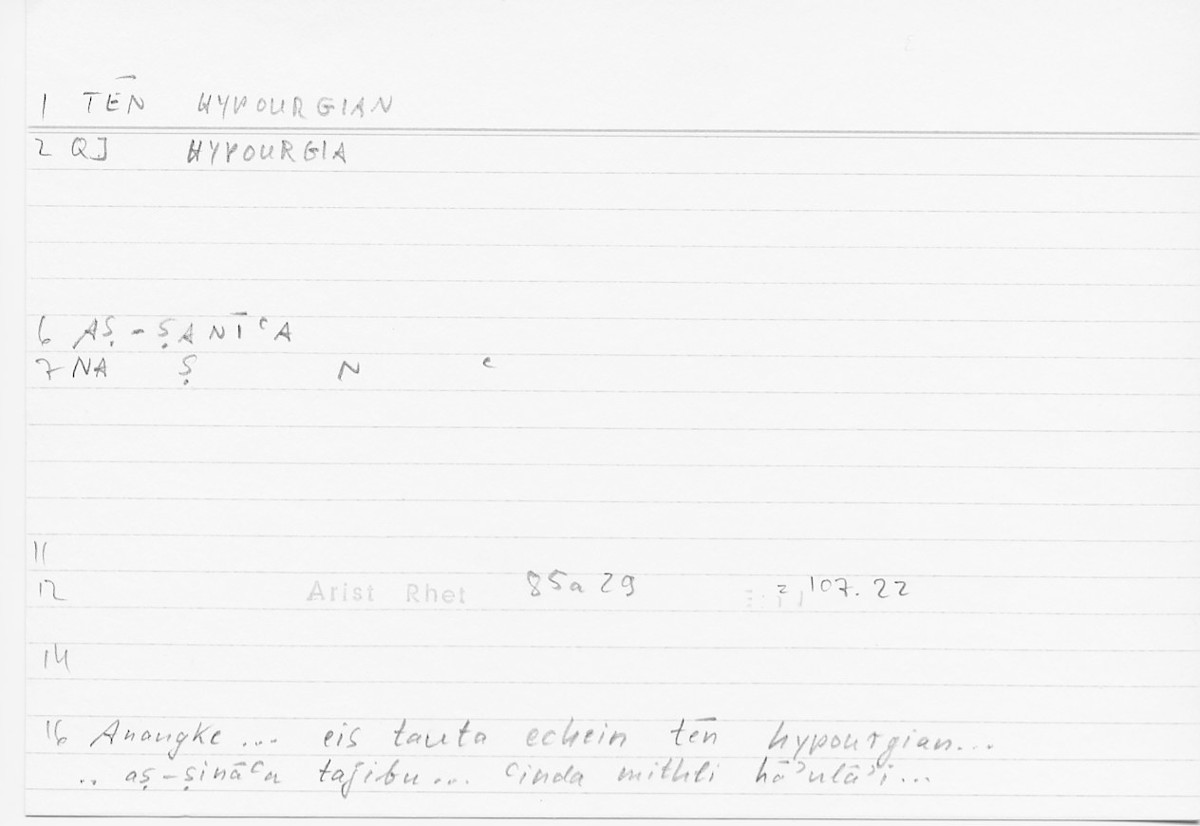 1 TĒN HYPOURGIAN
2 QJ HYPOURGIA
6 AṢ-ṢANĪʿA
7 NA Ṣ N ʿ
11
12 Arist Rhet 85a 29 107.22
14
16 Anangke ... eis tauta echein tēn hypourgian...
.. aṣ-ṣināʿa taǧibu... ʿinda mithli hāʾulāʾi...